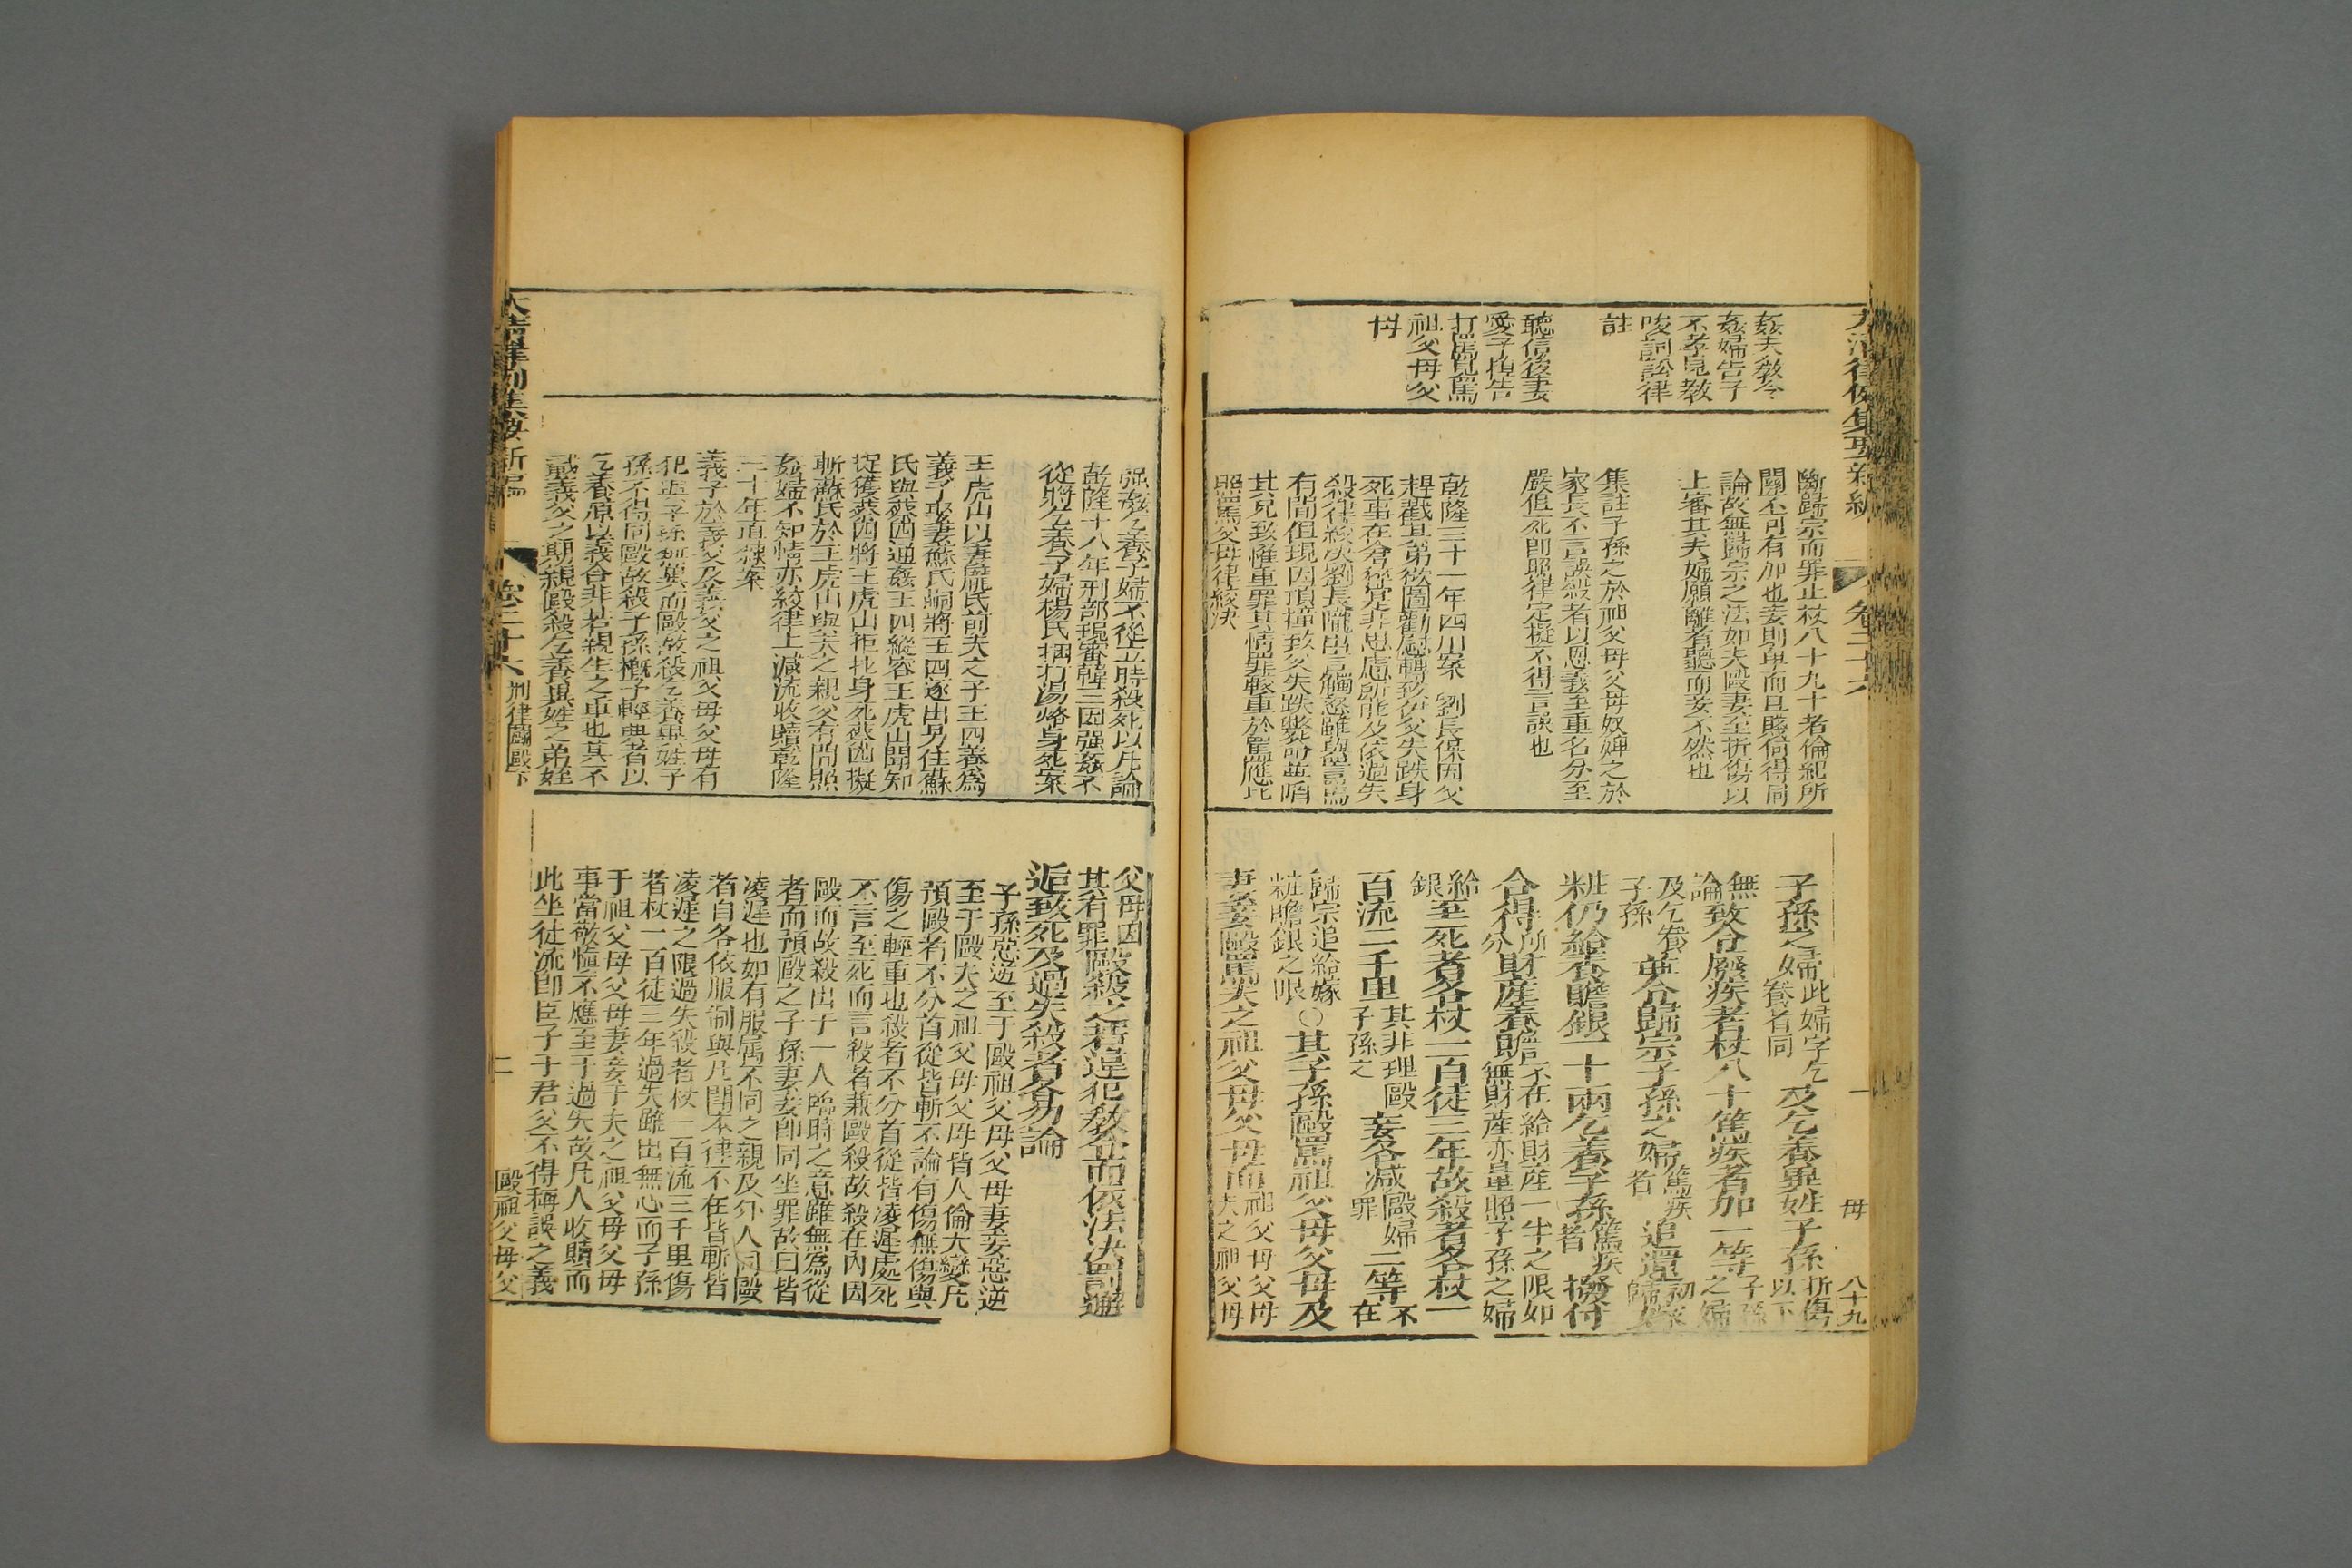 大清律例集要新編
卷二十六
一
母
八十九
姦夫教令
姦婦告子
不孝見教
唆詞訟律
註
聽信後妻
愛子揑告
打罵見罵
祖父母父
母
斷歸宗而罪止杖八十九十者倫紀所
關不可有加也妾則卑而且賤何得同
論故無歸宗之法如夫毆妻至折傷以
上審其夫婦願離者聽而妾不然也
集註子孫之於祖父母父母奴婢之於
家長不言誤殺者以恩義至重名分至
嚴但死卽照律定擬不得言誤也
乾隆三十一年四川案 劉長保因父
趕戳其弟欲圖勸慰轉致伊父失跌身
死事在倉猝究非思慮所能及依過失
殺律絞決劉長隴出言觸怒雖與詈罵
有間但現因頂撞致父失跌斃命並陷
其兄致罹重罪其情罪較重於罵應比
照罵父母律絞決
子孫之婦此婦字乞養者同及乞養異姓子孫折傷以下
無論致令廢疾者杖八十篤疾者加一等子孫之婦
及乞養子孫並令歸宗子孫之婦篤疾者追還初歸嫁
粧仍給養贍銀一十兩乞養子孫篤疾者撥付
合得所分財産養贍不在給財産一半之限如無財産亦量照子孫之婦
給銀至死者各杖一百徒三年故殺者各杖一
百流二千里其非理毆子孫之妾各減毆婦罪二等不在
歸宗追給嫁粧贍銀之限○其子孫毆罵祖父母父母及
妻妾毆罵夫之祖父母父母而祖父母父母夫之祖父母
强姦乞養子婦不從立時殺死以凡論
乾隆十八年刑部現審韓三因强姦不
從將乞養子婦楊氏捆打湯烙身死案
王虎山以妻龐氏前夫之子王四養爲
義子娶妻蘇氏嗣將王四逐出另住蘇
氏與蔡四通姦王四縱容王虎山聞知
捉獲蔡四將王虎山拒扎身死蔡四擬
斬蘇氏於王虎山與夫之親父有間照
姦婦不知情亦絞律上減流收贖乾隆
二十年直隸案
義子於義父及義父之祖父母父母有
犯與子孫無異而毆故殺乞養異姓子
孫不得同毆故殺子孫概予輕典者以
乞養原以義合非若親生之重也其不
載義父之期親毆殺乞養異姓之弟姪
父母因其有罪毆殺之若違犯教令而依法決罰邂
逅致死及過失殺者各勿論
子孫惡逆至于毆祖父母父母妻妾惡逆
至于毆夫之祖父母父母皆人倫大變凡
預毆者不分首從皆斬不論有傷無傷與
傷之輕重也殺者不分首從皆凌遲處死
不言至死而言殺者兼毆殺故殺在內因
毆而故殺出于一人臨時之意雖無爲從
者而預毆之子孫妻妾卽同坐罪故曰皆
凌遲也如有服屬不同之親及外人同毆
者自各依服制與凡鬭本律不在皆斬皆
凌遲之限過失殺者杖一百流三千里傷
者杖一百徒三年過失雖出無心而子孫
于祖父母父母妻妾于夫之祖父母父母
事當敬愼不應至于過失故凡人收贖而
此坐徒流卽臣子于君父不得稱誤之義
大清律例集要新編
卷二十六
刑律鬭毆下
二
毆祖父母父